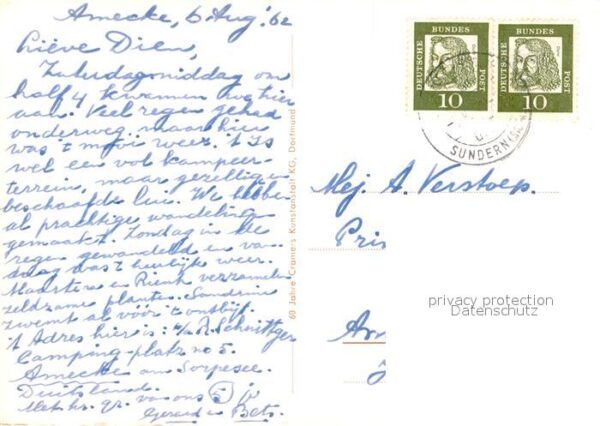 Amecke, 6 Aug. '62
Lieve Dien,
Zaterdagmiddag om
half 4 kwamen we hier
aan. Veel regen gehad
onderweg, maar hier
was 't mooi weer. 't Is
wel een vol kampeer-
terrein, maar gezellige
beschaafde lui. We hebben
al prachtige wandeling
gemaakt. Zondag in de
regen gewandeld en van-
daag was 't heerlijk weer.
en Rienk verzamelen
zeldzame planten.
zwemt al vóór 't ontbijt.
't Adres hier is: c/o
Camping-platz no 5.
Amecke am Sorpesee.
Duitsland.
Met hr. gr. van ons 5
Gerard en Bets.
60 Jahre Cramers Kunstanstalt KG, Dortmund
DEUTSCHE BUNDES POST
10
DEUTSCHE BUNDES POST
10
SUNDERN (SA
Mej. A. Verstoep.
Prin
privacy protection
Datenschutz